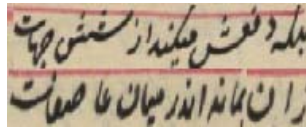 بلکه دفعش میکند از شش جهات
زان بماند اندر میان عاصفات